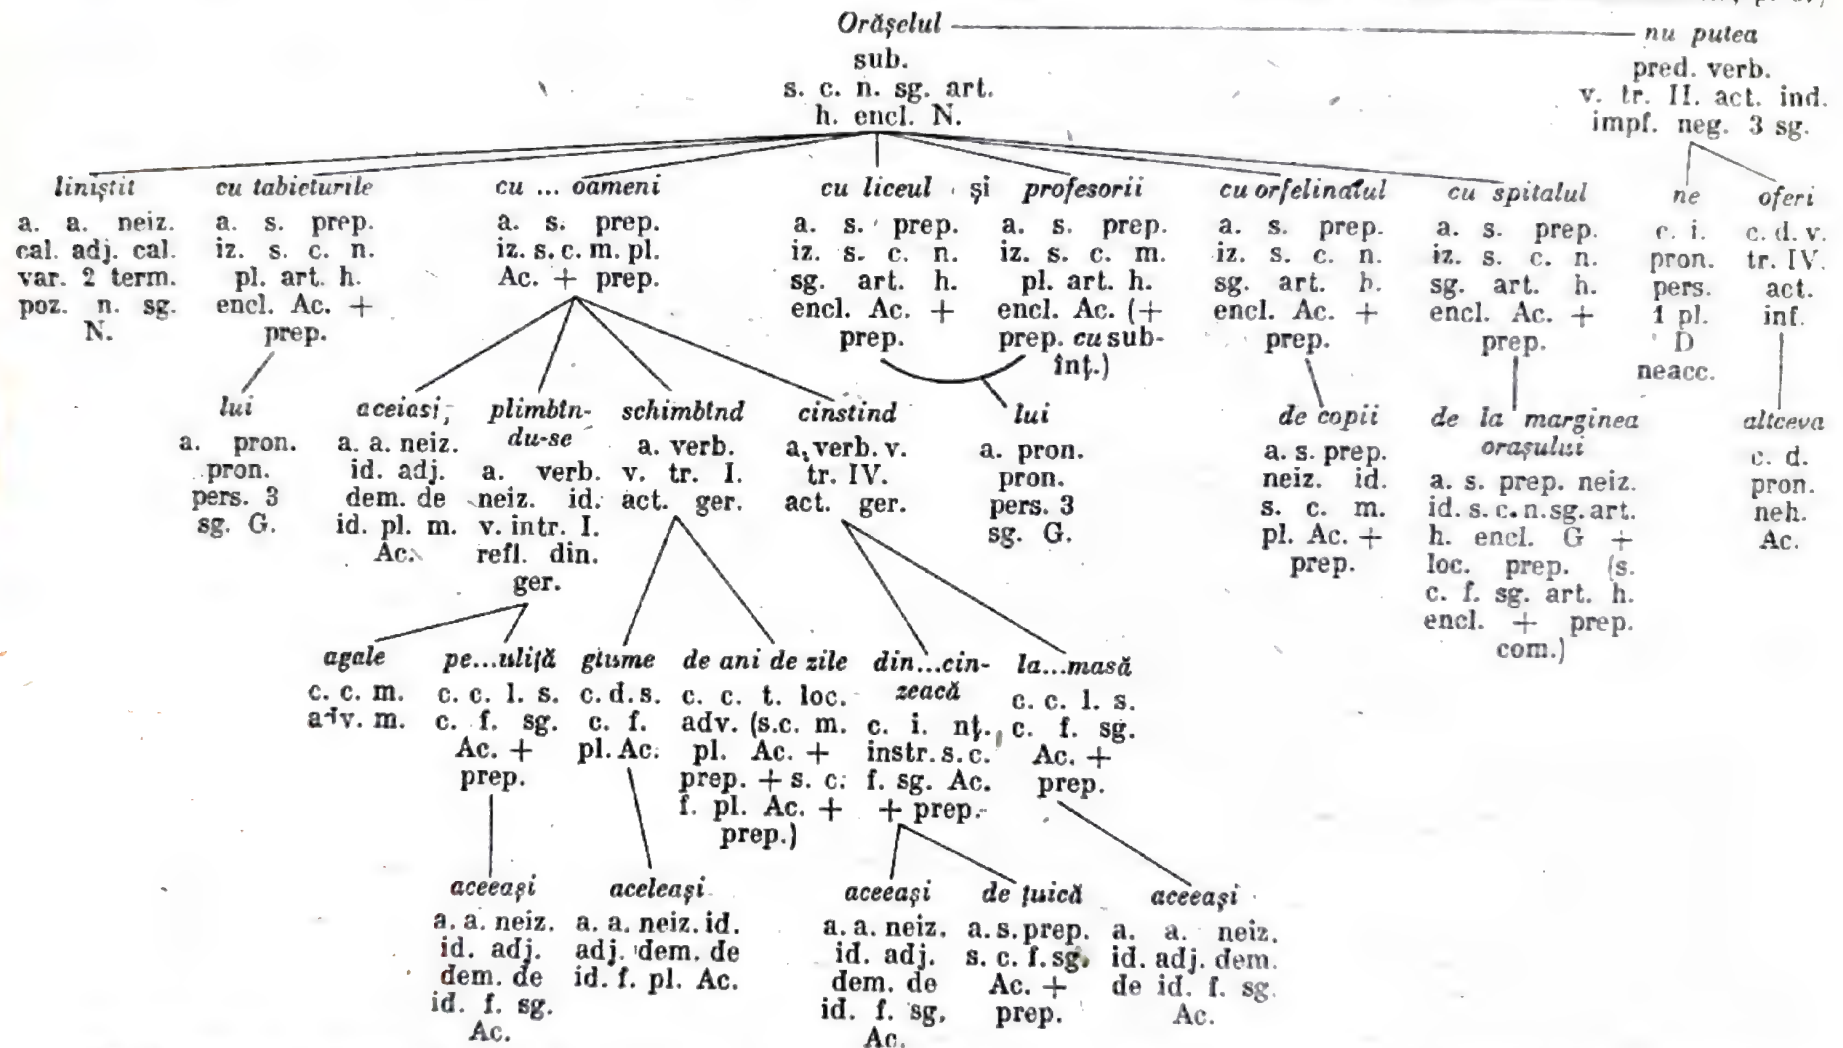 Orășelul
nu putea
sub.
s. c. n. sg. art.
h. encl. N.
pred. verb.
v. tr. II. act. ind.
impf. neg. 3 sg.
liniștit
a. a. neiz.
cal. adj. cal.
var. 2 term.
poz. n. sg.
N.
cu tabieturile
a. s. prep.
iz. s. c. n.
pl. art. h.
encl. Ac. +
prep.
cu ... oameni
a. s. prep.
iz. s. c. m. pl.
Ac. + prep.
cu liceul și
a. s. prep.
iz. s. c. n.
sg. art. h.
encl. Ac. +
prep.
profesorii
a. s. prep.
iz. s. c. m.
pl. art. h.
encl. Ac. (+
prep. cu sub-
înț.)
cu orfelinatul
a. s. prep.
iz. s. c. n.
sg. art. h.
encl. Ac. +
prep.
cu spitalul
a. s. prep.
iz. s. c. n.
sg. art. h.
encl. Ac. +
prep.
ne
c. i.
pron.
pers.
1 pl.
D
neacc.
oferi
c. d. v.
tr. IV.
act.
inf.
lui
a. pron.
pron.
pers. 3
sg. G.
aceiasi,
a. a. neiz.
id. adj.
dem. de
id. pl. m.
Ac.
plimbîn-
du-se
a. verb.
neiz. id.
v. intr. I.
refl. din.
ger.
schimbînd
a. verb.
v. tr. I.
act. ger.
cinstind
a. verb. v.
tr. IV.
act. ger.
lui
a. pron.
pron.
pers. 3
sg. G.
de copii
a. s. prep.
neiz. id.
s. c. m.
pl. Ac. +
prep.
de la marginea
orașului
a. s. prep. neiz.
id. s. c. n. sg. art.
h. encl. G +
loc. prep. (s.
c. f. sg. art. h.
encl. + prep.
com.)
altceva
c. d.
pron.
neh.
Ac.
agale
c. c. m.
adv. m.
pe...uliță
c. c. l. s.
c. f. sg.
Ac. +
prep.
glume
c. d. s.
c. f.
pl. Ac.
de ani de zile
c. c. t. loc.
adv. (s.c. m.
pl. Ac. +
prep. + s. c.
f. pl. Ac. +
prep.)
din...cin-
zeacă
c. i. nț.
instr. s. c.
f. sg. Ac.
+ prep.
la...masă
c. c. l. s.
c. f. sg.
Ac. +
prep.
aceeași
a. a. neiz.
id. adj.
dem. de
id. f. sg.
Ac.
aceleași
a. a. neiz. id.
adj. dem. de
id. f. pl. Ac.
aceeași
a. a. neiz.
id. adj.
dem. de
id. f. sg.
Ac.
de țuică
a. s. prep.
s. c. f. sg.
Ac. +
prep.
aceeași
a. a. neiz.
id. adj. dem.
de id. f. sg.
Ac.